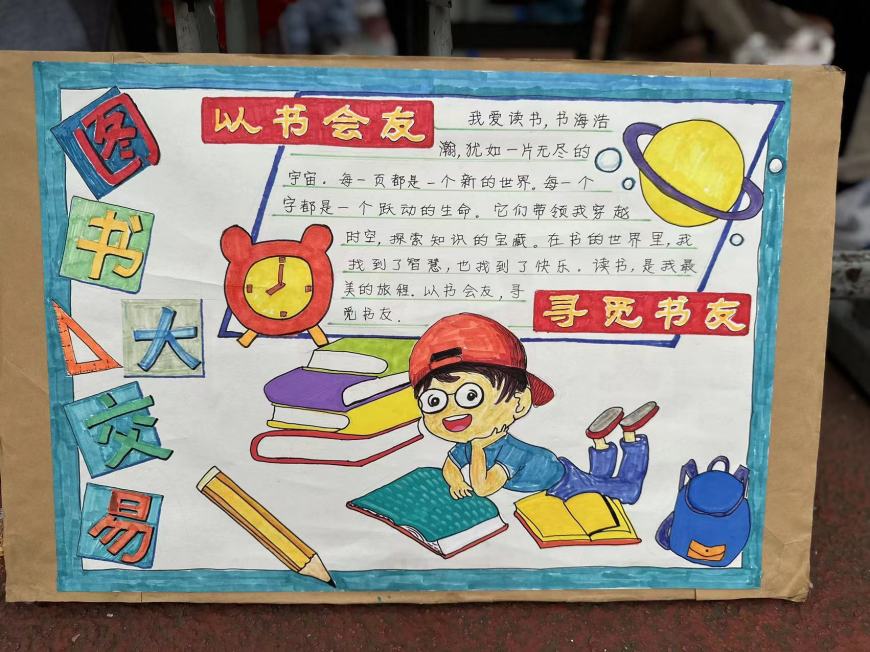 图书大交易
以书会友
我爱读书,书海浩
瀚,犹如一片无尽的
宇宙.每一页都是一个新的世界。每一个
字都是一个跃动的生命。它们带领我穿越
时空,探索知识的宝藏。在书的世界里,我
找到了智慧,也找到了快乐。读书,是我最
美的旅程.以书会友,寻
觅书友.
寻觅书友